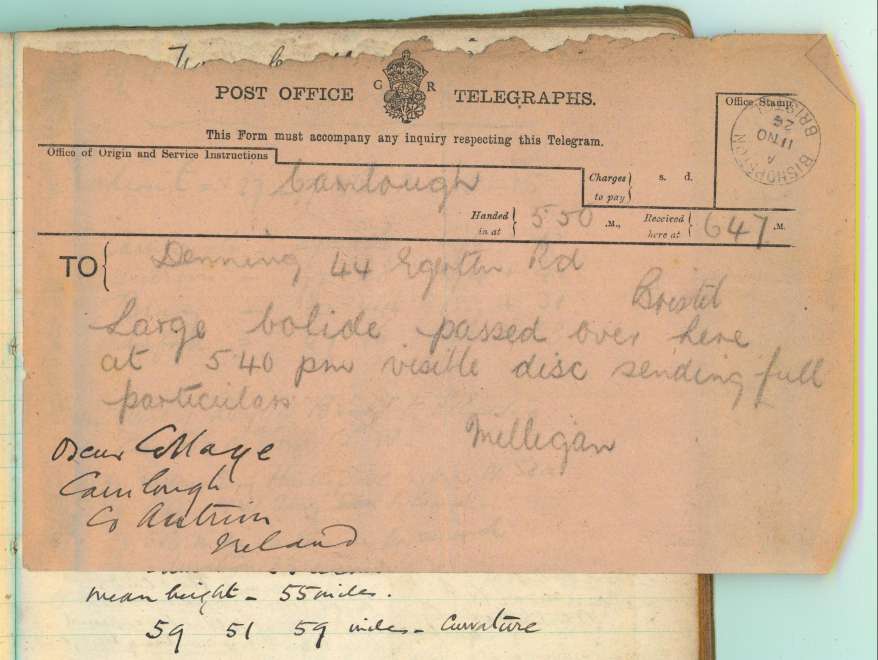 POST OFFICE G R TELEGRAPHS.
This Form must accompany any inquiry respecting this Telegram.
Office of Origin and Service Instructions
Carnlough
Charges to pay
s. d.
Office Stamp.
BISHOPSTON
A
11 NO
26
BRISTOL
Handed in at 5 50 .M., Received here at 6 47 .M.
TO Denning 44 Egerton Rd
Bristol
Large bolide passed over here
at 5 40 pm visible disc sending full
particulars
Milligan
Cottage
Carnlough
Co Antrim
Ireland
mean height - 55 miles.
59 51 59 miles - Curvature